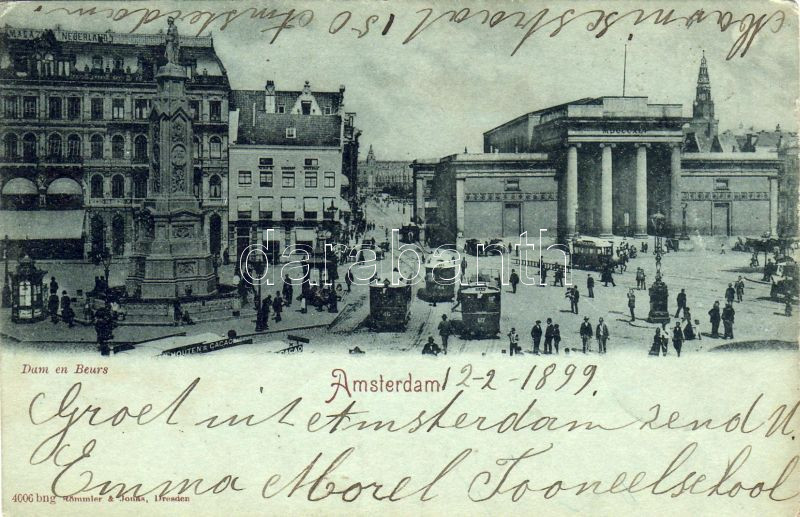 Marnixstraat 150 Amsterdam
MAGAZIJN NEDERLAND
MDCCCXLV
darabanth.com
HOUTEN'S CACAO
CACAO
Dam en Beurs
Amsterdam 12-2-1899
Groet uit Amsterdam zend U.
Emma Morel Tooneelschool
4006 bng Römmler & Jonas, Dresden